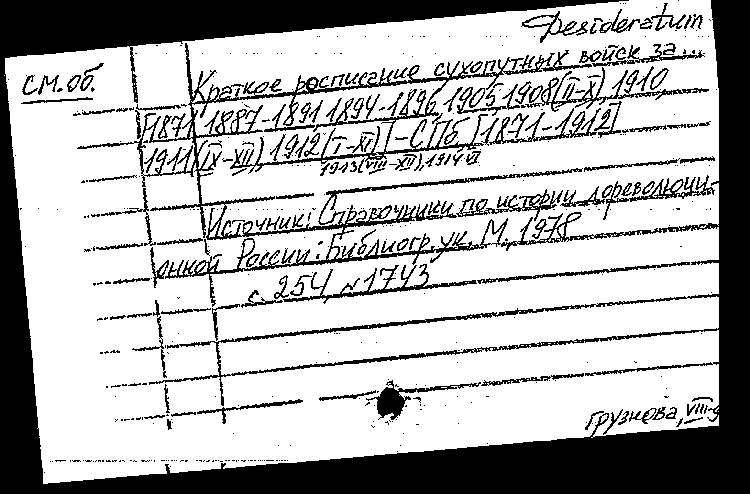 Desideratum
см. об.
Краткое росписание сухопутных войск за...
[1871, 1887-1891, 1894-1896, 1905, 1908(II-X), 1910,
1911(IX-XII), 1912(I-XI)] - СПб, [1871-1912]
1913(VIII-XII), 1914 VI
Источник: Справочники по истории дореволюци-
онной России: Библиогр. ук. М., 1978
с. 254, №1743
Грузнова, VIII-9